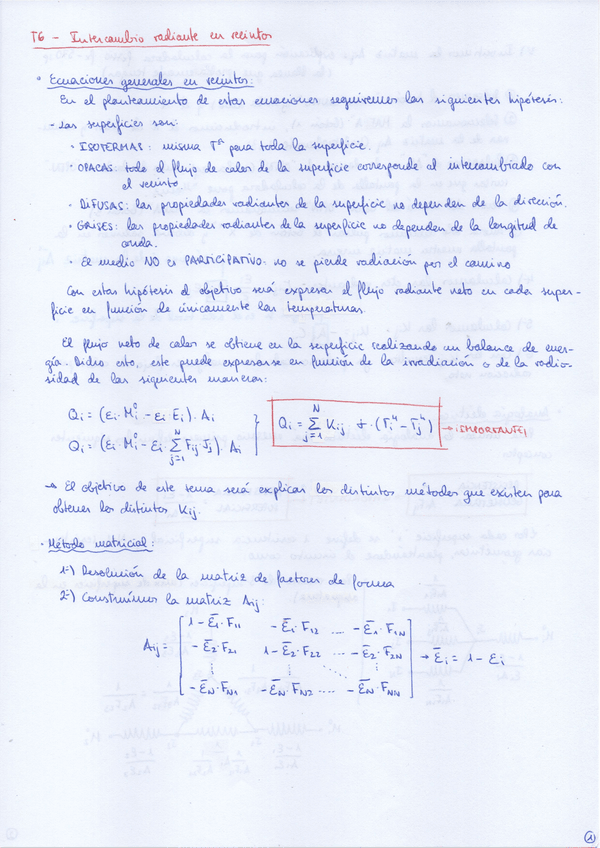 T6 - Intercambio radiante en recintos
• Ecuaciones generales en recintos:
En el planteamiento de estas ecuaciones seguiremos las siguientes hipótesis:
- Las superficies son:
• ISOTERMAS: misma Tª para toda la superficie.
• OPACAS: todo el flujo de calor de la superficie corresponde al intercambiado con
el recinto.
• DIFUSAS: las propiedades radiantes de la superficie no dependen de la dirección.
• GRISES: las propiedades radiantes de la superficie no dependen de la longitud de
onda.
• El medio NO es PARTICIPATIVO: no se pierde radiación por el camino
Con estas hipótesis el objetivo será expresar el flujo radiante neto en cada super-
ficie en función de únicamente las temperaturas.
El flujo neto de calor se obtiene en la superficie realizando un balance de ener-
gía. Dicho esto, este puede expresarse en función de la irradiación o de la radio-
sidad de las siguientes maneras:
Qi = (εi·Mi⁰ - εi·Ei)·Ai
Qi = (εi·Mi⁰ - εi·∑_{j=1}^{N} Fij Jj)·Ai } Qi = ∑_{j=1}^{N} Kij σ·(Ti⁴ - Tj⁴) → IMPORTANTE!
→ El objetivo de este tema será explicar los distintos métodos que existen para
obtener los distintos Kij.
• Método matricial:
1º) Resolución de la matriz de factores de forma
2º) Construimos la matriz Aij:
1-ε̄1·F11 -ε̄1·F12 .... -ε̄1·F1N
Aij = -ε̄2·F21 1-ε̄2·F22 .... -ε̄2·F2N → ε̄i = 1-εi
⋮ ⋮ ⋱ ⋮
-ε̄N·FN1 -ε̄N·FN2 .... -ε̄N·FNN
1